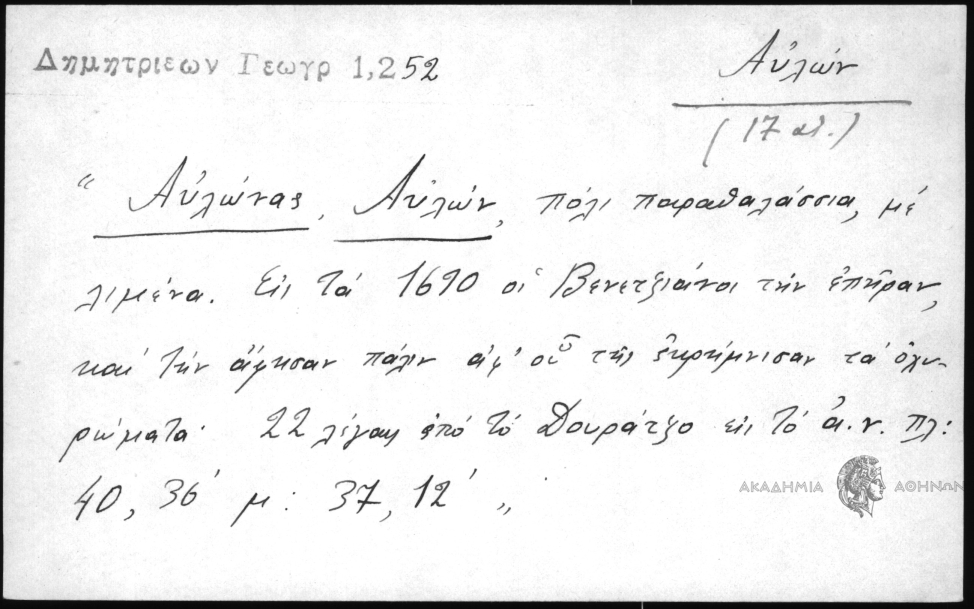 Δημητριεων Γεωγρ 1,252
Αὐλών
(17 αἰ.)
“ Αὐλώνας, Αὐλών, πόλι παραθαλάσσια, μέ
λιμένα. Εἰς τά 1690 οἱ Βενετζιάνοι τήν ἐπῆραν,
καί τήν ἄφησαν πάλιν ἀφ' οὗ τῆς ἐκρήμνισαν τά ὀχυ-
ρώματα· 22 λέγαις ἀπό τό Δουράτζο εἰς τό ἀ.ν. πλ:
40, 36' μ: 37, 12' „
ΑΚΑΔΗΜΙΑ ΑΘΗΝΩΝ